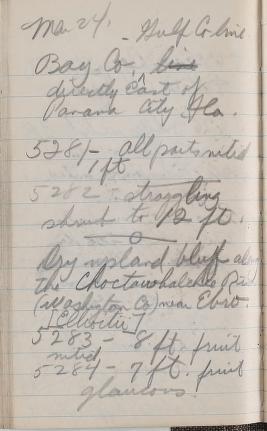 Mar 24. - Gulf Co line
Bay Co. line
directly East of
Panama City, Fla.
5281 - all parts noted
1 ft
5282 - straggling
shrub to 12 ft.
Dry upland bluff along
the Choctawhatchee Riv
(Washington Co) near Ebro.
[Elliottii]
5283 - 8 ft. fruit
noted
5284 - 7 ft. fruit
glaucous!